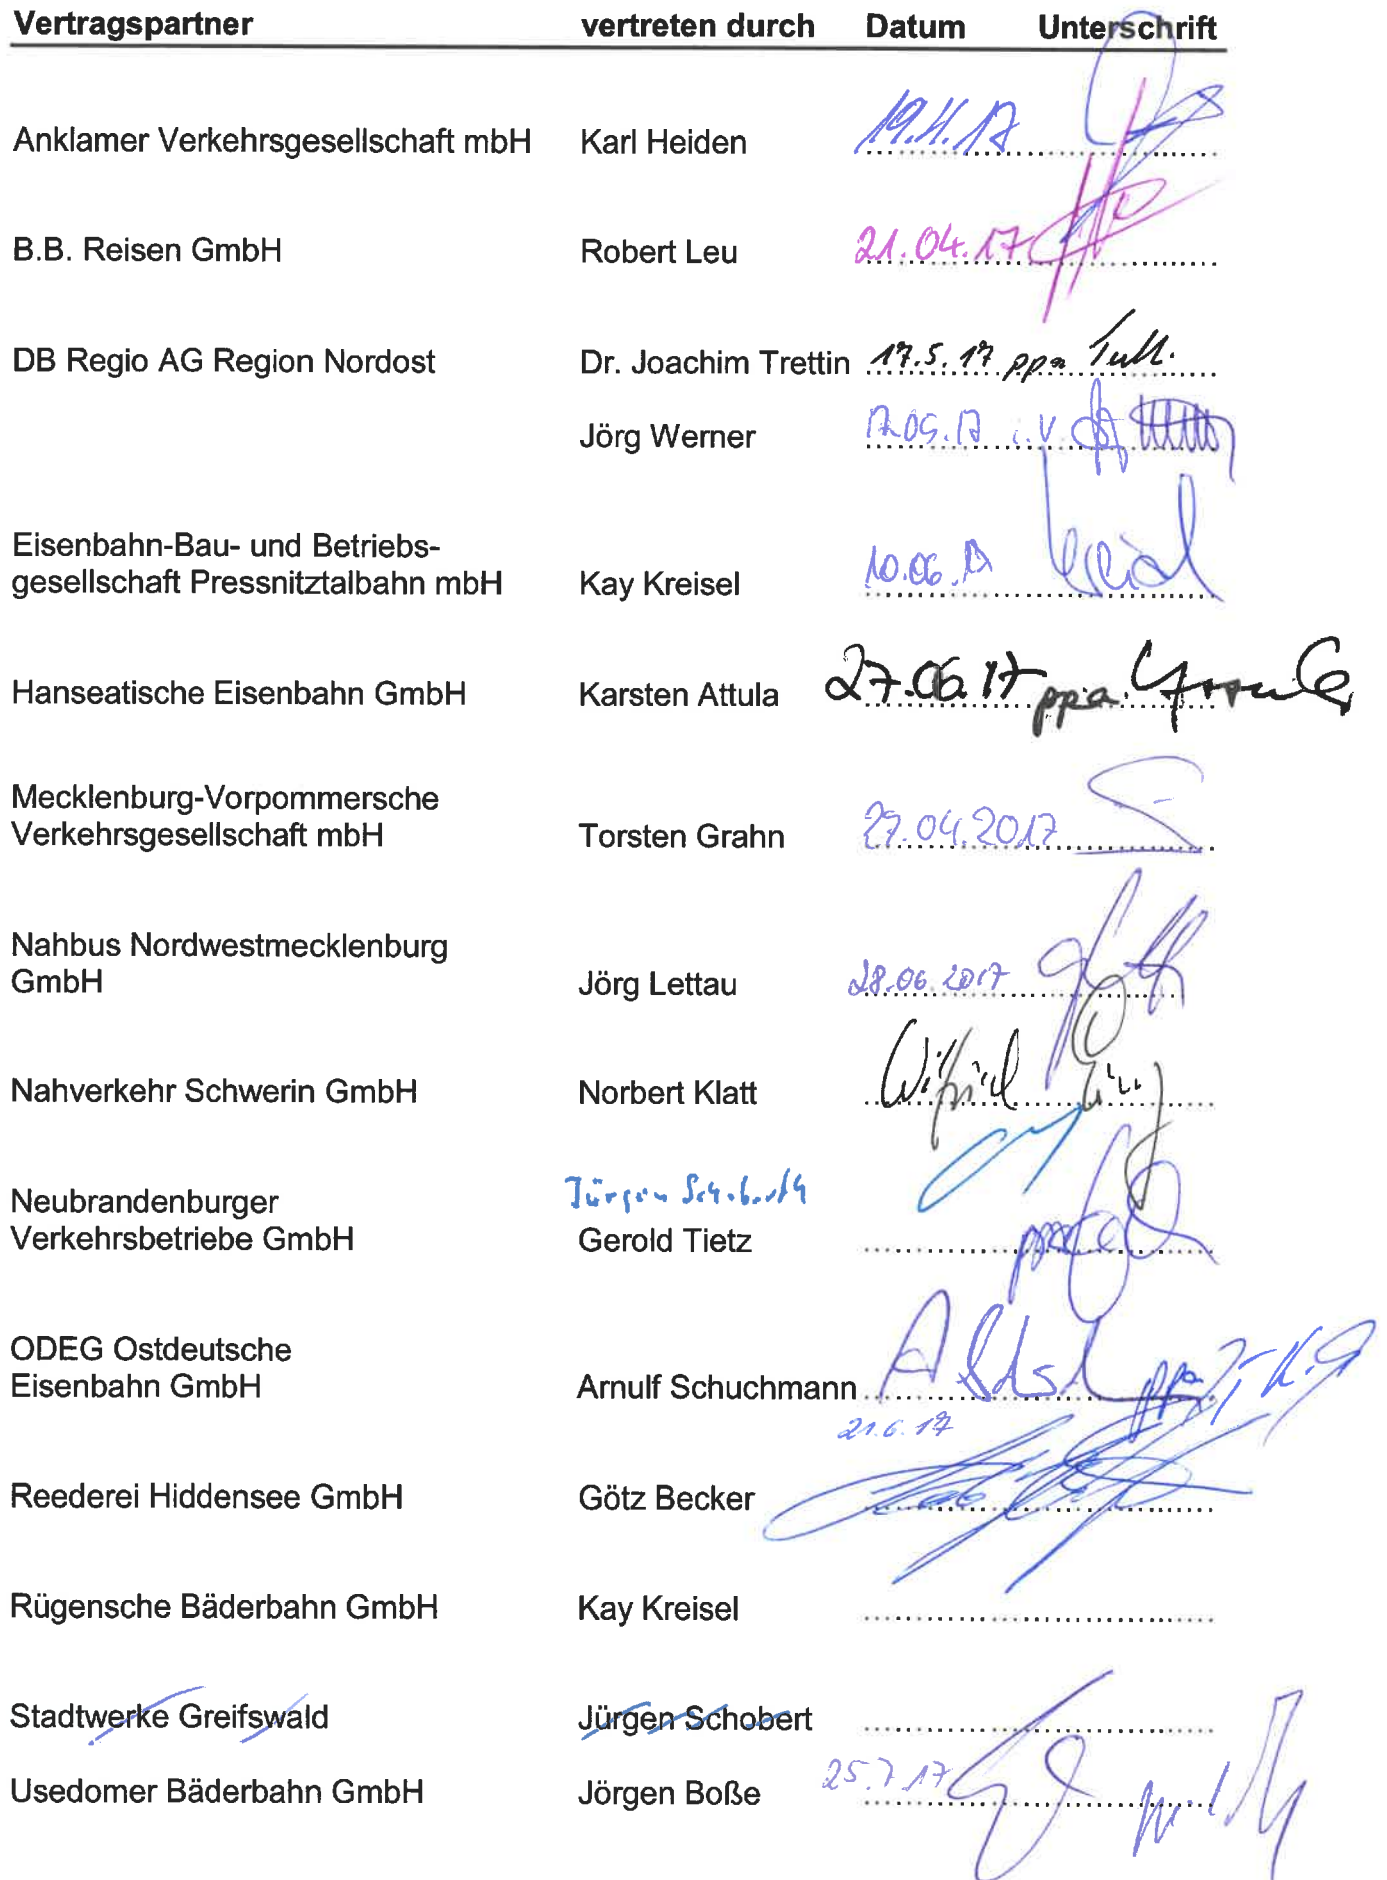 Vertragspartner vertreten durch Datum Unterschrift
Anklamer Verkehrsgesellschaft mbH Karl Heiden
B.B. Reisen GmbH Robert Leu 21.04.17
DB Regio AG Region Nordost Dr. Joachim Trettin 17.5.17 ppa
Jörg Werner i.V.
Eisenbahn-Bau- und Betriebs-
gesellschaft Pressnitztalbahn mbH Kay Kreisel 10.06.17
Hanseatische Eisenbahn GmbH Karsten Attula 27.06.17 ppa.
Mecklenburg-Vorpommersche
Verkehrsgesellschaft mbH Torsten Grahn 27.04.2017
Nahbus Nordwestmecklenburg
GmbH Jörg Lettau 28.06.2017
Nahverkehr Schwerin GmbH Norbert Klatt Wilfried
Jürgen Schobert
Neubrandenburger
Verkehrsbetriebe GmbH Gerold Tietz
ODEG Ostdeutsche
Eisenbahn GmbH Arnulf Schuchmann ppa.
21.6.17
Reederei Hiddensee GmbH Götz Becker
Rügensche Bäderbahn GmbH Kay Kreisel
Stadtwerke Greifswald Jürgen Schobert
Usedomer Bäderbahn GmbH Jörgen Boße 25.7.17